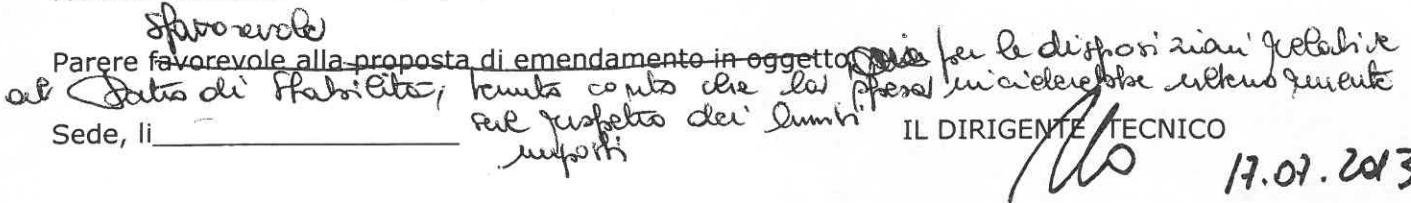 sfavorevole
Parere favorevole alla proposta di emendamento in oggetto per le disposizioni relative
al Patto di Stabilità, tenuto conto che la spesa inciderebbe ulteriormente
Sede, li_______________ sul rispetto dei limiti IL DIRIGENTE TECNICO
imposti
17.07.2013